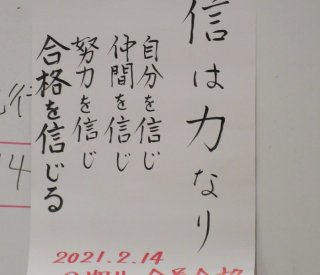 信は力なり
自分を信じ
仲間を信じ
努力を信じ
合格を信じる
2021.2.14